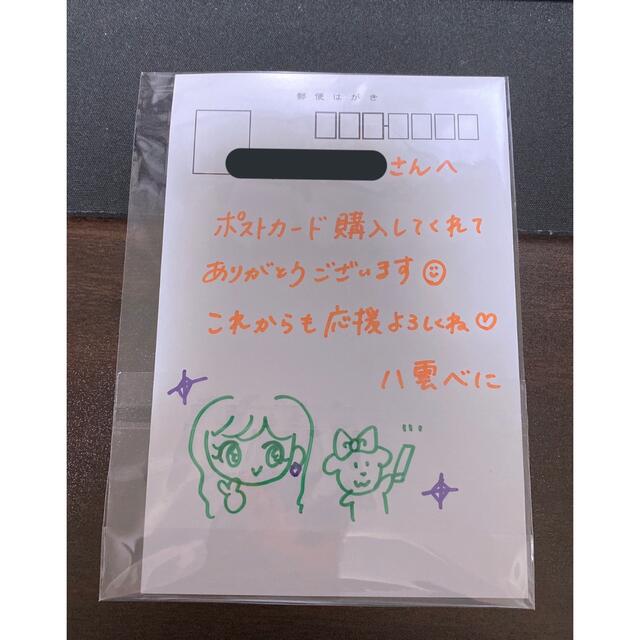 郵便はがき
さんへ
ポストカード購入してくれて
ありがとうございます
これからも応援よろしくね♡
八雲べに